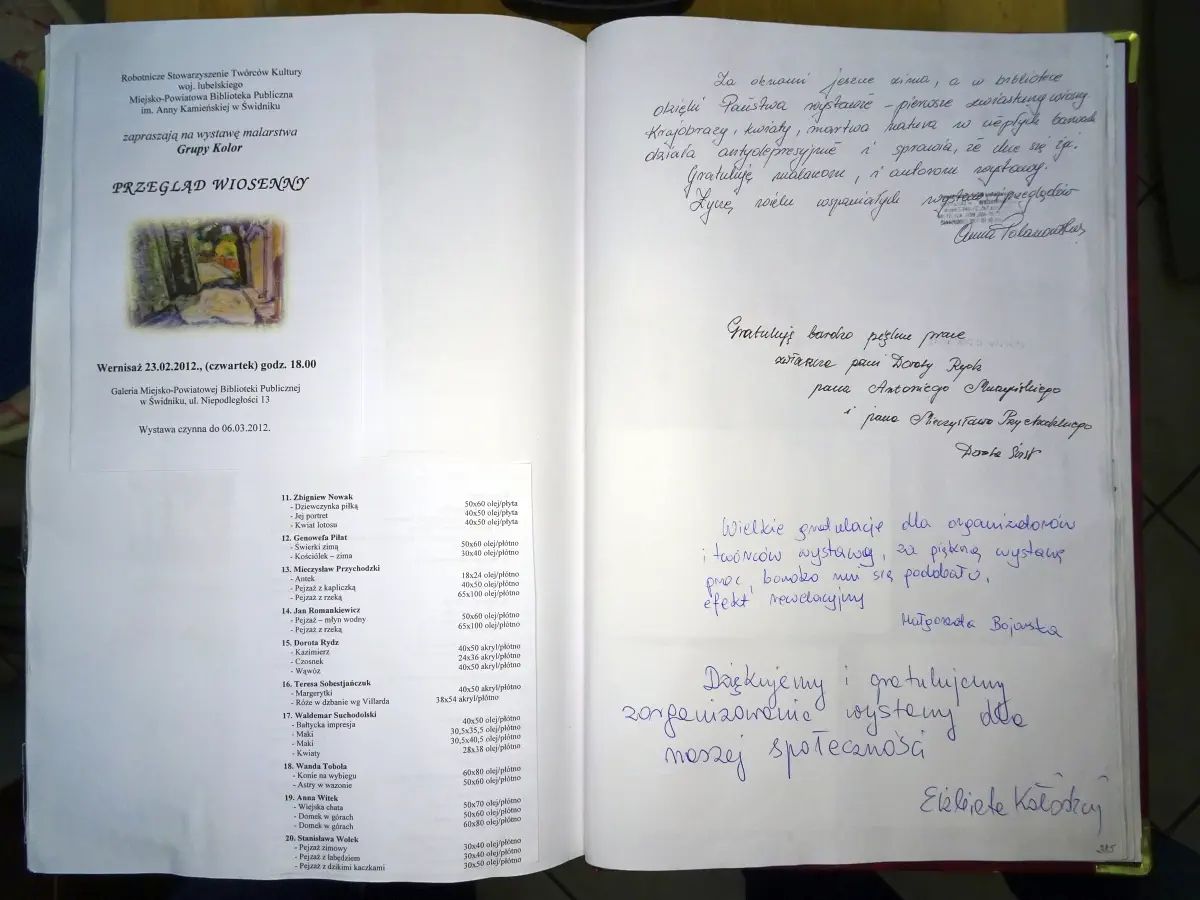 Robotnicze Stowarzyszenie Twórców Kultury
woj. lubelskiego
Miejsko-Powiatowa Biblioteka Publiczna
im. Anny Kamieńskiej w Świdniku
zapraszają na wystawę malarstwa
Grupy Kolor
PRZEGLĄD WIOSENNY
Wernisaż 23.02.2012., (czwartek) godz. 18.00
Galeria Miejsko-Powiatowej Biblioteki Publicznej
w Świdniku, ul. Niepodległości 13
Wystawa czynna do 06.03.2012.
11. Zbigniew Nowak
- Dziewczynka piłką 50x60 olej/płyta
- Jej portret 40x50 olej/płyta
- Kwiat lotosu 40x50 olej/płyta
12. Genowefa Piłat
- Świerki zimą 50x60 olej/płótno
- Kościółek – zima 30x40 olej/płótno
13. Mieczysław Przychodzki
- Antek 18x24 olej/płótno
- Pejzaż z kapliczką 40x50 olej/płótno
- Pejzaż z rzeką 65x100 olej/płótno
14. Jan Romankiewicz
- Pejzaż – młyn wodny 50x60 olej/płótno
- Pejzaż z rzeką 65x100 olej/płótno
15. Dorota Rydz
- Kazimierz 40x50 akryl/płótno
- Czosnek 24x36 akryl/płótno
- Wąwóz 40x50 akryl/płótno
16. Teresa Sobestjańczuk
- Margerytki 40x50 akryl/płótno
- Róże w dzbanie wg Villarda 38x54 akryl/płótno
17. Waldemar Suchodolski
- Bałtycka impresja 40x50 olej/płótno
- Maki 30,5x35,5 olej/płótno
- Maki 30,5x40,5 olej/płótno
- Kwiaty 28x38 olej/płótno
18. Wanda Toboła
- Konie na wybiegu 60x80 olej/płótno
- Astry w wazonie 50x60 olej/płótno
19. Anna Witek
- Wiejska chata 50x70 olej/płótno
- Domek w górach 50x60 olej/płótno
- Domek w górach 60x80 olej/płótno
20. Stanisława Wołek
- Pejzaż zimowy 30x40 olej/płótno
- Pejzaż z łabędziem 30x40 olej/płótno
- Pejzaż z dzikimi kaczkami 30x50 olej/płótno
Za oknami jeszcze zima, a w bibliotece
dzięki Państwa wystawie – pierwsze zwiastuny wiosny
Krajobrazy, kwiaty, martwa natura w ciepłych barwach
działa antydepresyjnie i sprawia, że chce się żyć.
Gratuluję malarzom, i autorom wystawy.
Życzę wielu wspaniałych przeglądów
Anna
Gratuluję bardzo piękne prace
zwłaszcza pani Doroty Rydz
pana Antoniego
i pana Mieczysława Przychodzkiego
Dorota
Wielkie gratulacje dla organizatorów
i twórców wystawy, za piękną wystawę
prac, bardzo mi się podobało,
efekt rewelacyjny
Małgorzata Bojarska
Dziękujemy i gratulujemy
zorganizowanie wystawy dla
naszej społeczności
Elżbieta